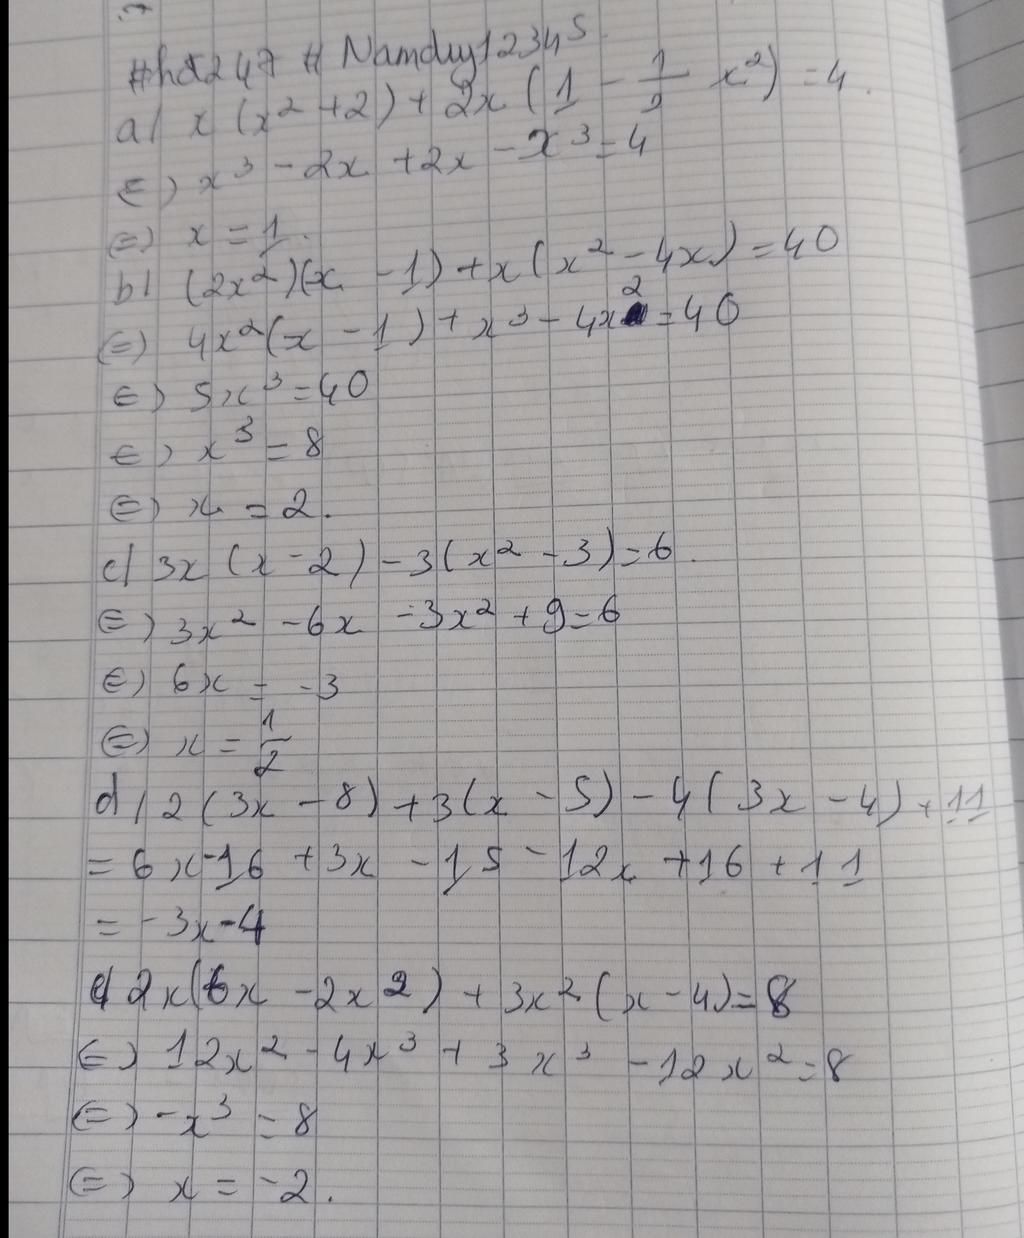 #hdt247 # Namduy12345
a/ x (x² + 2) + 2x (1 - 1/2 x²) = 4.
⇔) x³ - 2x + 2x - x³ = 4
⇔) x = 1.
b/ (2x²)(x - 1) + x(x² - 4x) = 40
⇔) 4x²(x - 1) + x³ - 4x² = 40
⇔) 5x³ = 40
⇔) x³ = 8
⇔) x = 2.
c/ 3x (x - 2) - 3(x² - 3) = 6.
⇔) 3x² - 6x - 3x² + 9 = 6
⇔) 6x = -3
⇔) x = 1/2
d/ 2(3x - 8) + 3(x - 5) - 4(3x - 4) + 11
= 6x - 16 + 3x - 15 - 12x + 16 + 11
= -3x - 4
e/ 2x(6x - 2x²) + 3x²(x - 4) = 8
⇔) 12x² - 4x³ + 3x³ - 12x² = 8
⇔) -x³ = 8
⇔) x = -2.